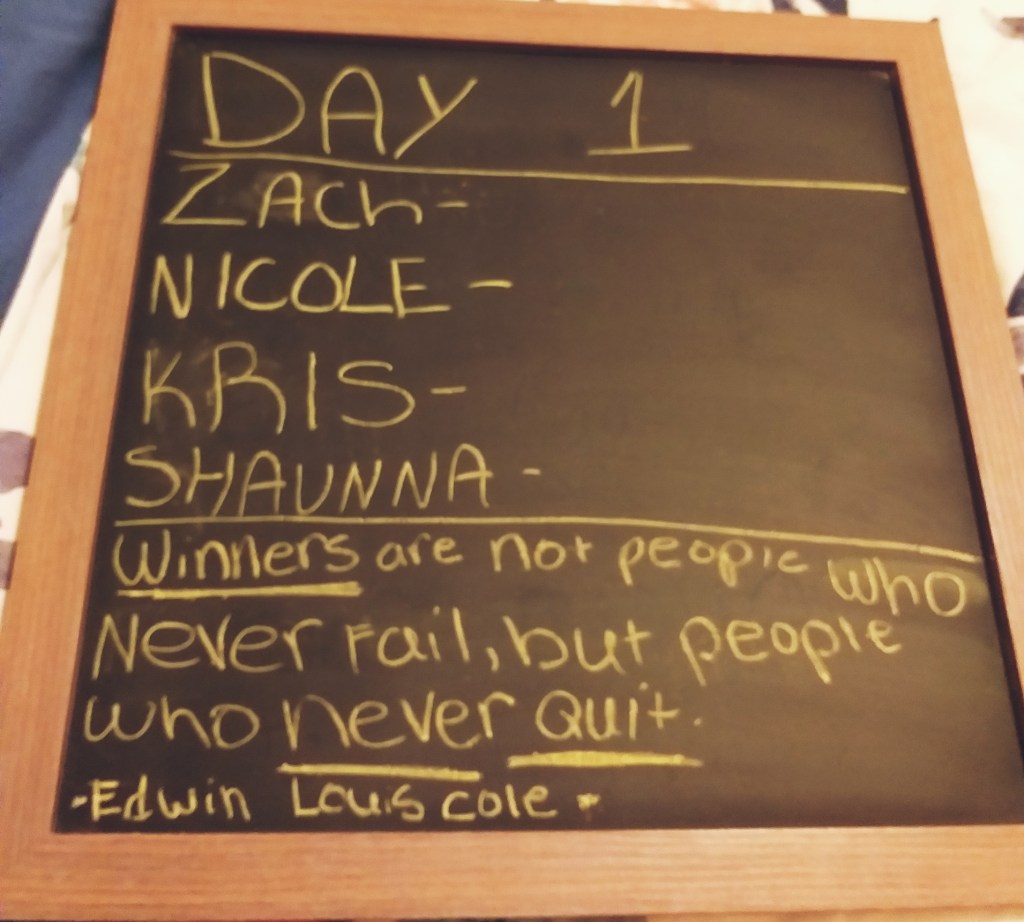 DAY 1
ZACh-
NICOLE -
KRIS-
SHAUNNA -
Winners are not people who
Never Fail, but people
who never Quit.
-Edwin Louis Cole -